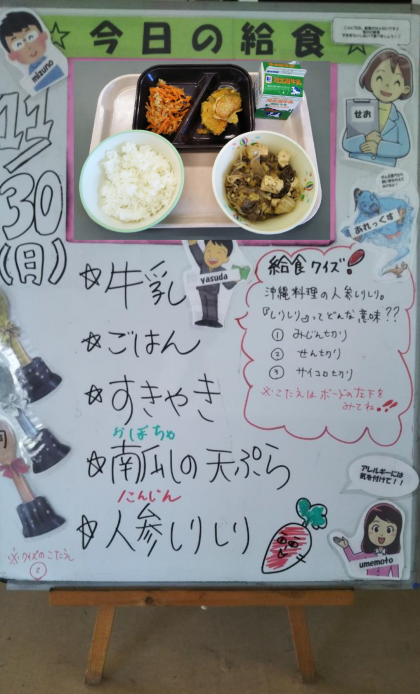 ☆今日の給食☆
mizuno
せお
11/30(月)
あれっくす
yasuda
☆牛乳
☆ごはん
☆すきやき
かぼちゃ
☆南瓜の天ぷら
にんじん
☆人参しりしり
給食クイズ!
沖縄料理の人参しりしり。
『しりしり』ってどんな意味??
① みじん切り
② せん切り
③ サイコロ切り
※こたえはボードの左下を
みてね!!
アレルギーには
気を付けて!!
umemoto
※クイズのこたえ
②